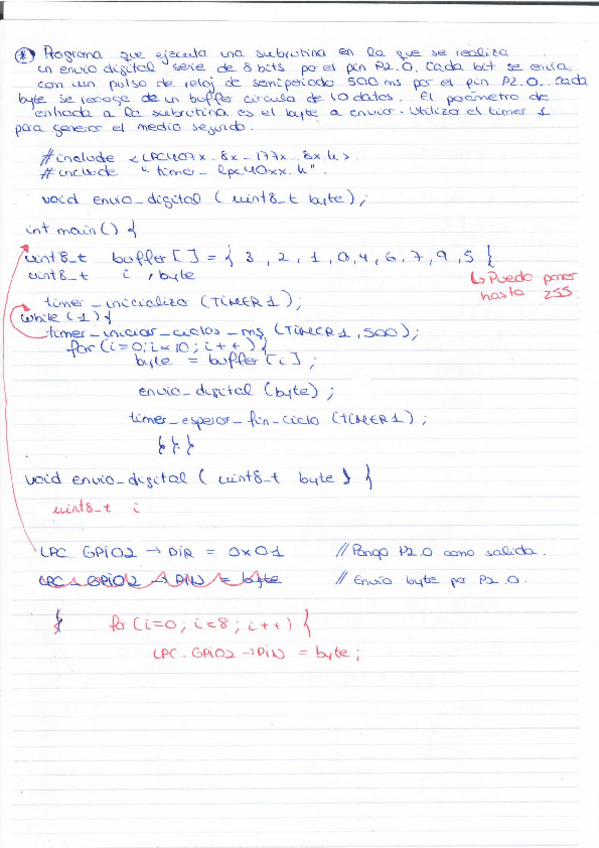 * Programa que ejecuta una subrutina en la que se realiza
un envío digital serie de 8 bits por el pin P2.0. Cada bit se envía
con un pulso de reloj de semiperiodo 500 ms por el pin P2.0. Cada
byte se recoge de un buffer circula de 10 datos. El parámetro de
entrada a la subrutina es el byte a enviar. Utilizo el timer 1
para generar el medio segundo.
#include <LPC407x-8x-177x-8x.h>
#include "timer_lpc40xx.h".
void envio_digital (uint8_t byte);
int main() {
uint8_t buffer[] = { 3, 2, 1, 0, 4, 6, 7, 9, 5 {
uint8_t i, byte
↳ Puedo poner
hasta 255
timer_inicializa (TIMER1);
while (1) {
timer_iniciar_ciclos_ms (TIMER1, 500);
for (i=0; i<10; i++) {
byte = buffer[i];
envio_digital (byte);
timer_esperar_fin_ciclo (TIMER1);
}}}
void envio_digital (uint8_t byte) {
uint8_t i
LPC_GPIO2 → DIR = 0x01 // Pongo P2.0 como salida.
LPC_GPIO2 → PIN = byte // Envío byte por P2.0.
} for (i=0; i<8; i++) {
LPC_GPIO2→PIN = byte;